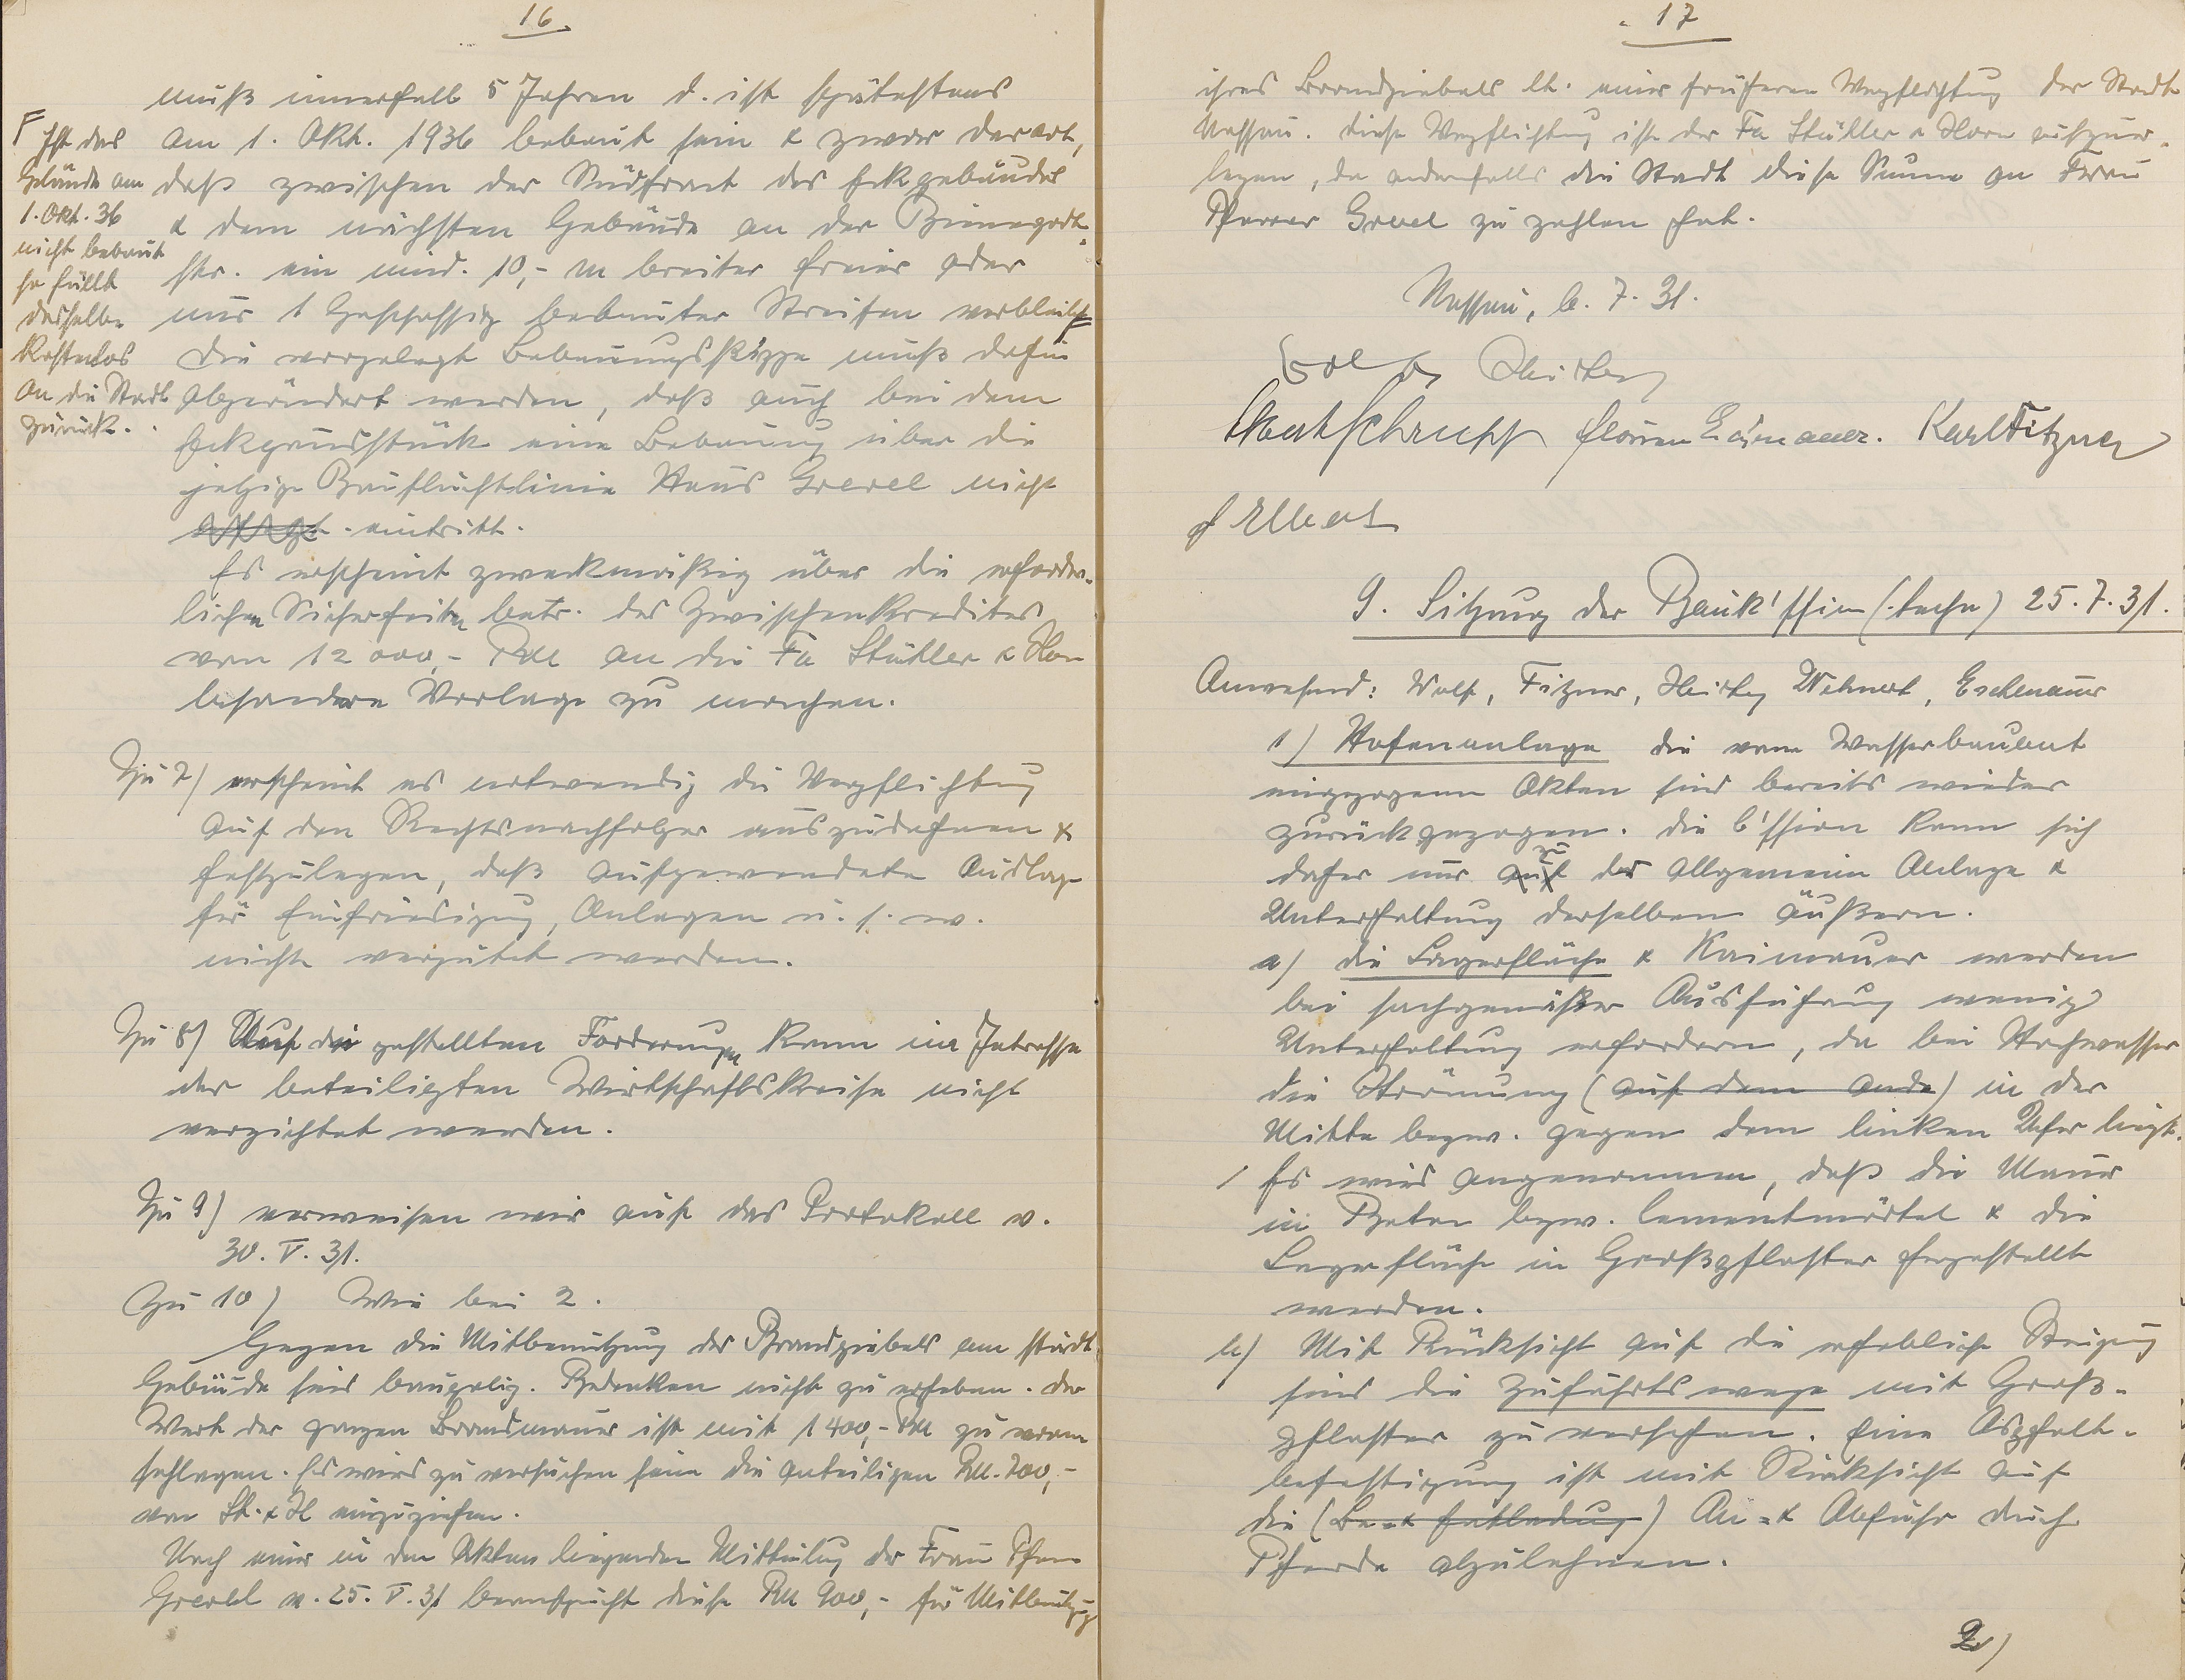 16
muß innerhalb 5 Jahren d. ist spätestens
am 1. Okt. 1936 bebaut sein & zwar derart,
daß zwischen der Südfront des Eckgebäudes
& dem nächsten Gebäude an der
str. ein mind. 10,- m breiter freier oder
nur 1 Geschossig bebauter Streifen verbleibt F
Die vorgelegte Bebauungsskizze muß dahin
abgeändert werden, daß auch bei dem
Eckgrundstück eine Bebauung über die
jetzige Baufluchtlinie Haus Grevel nicht
eintritt.
F Ist das
Gelände am
1. Okt. 36
nicht bebaut
so fällt
dasselbe
Kostenlos
an die Stadt
zurück.
Es erscheint zweckmäßig über die erforder-
lichen Sicherheiten betr. des Zwischenkredites
von 12 000,- RM an die Fa Stühler & Horn
besondere Vorlage zu machen.
Zu 7) erscheint es notwendig die Verpflichtung
auf den Rechtsnachfolger auszudehnen &
festzulegen, daß aufgewendete Auslage
für Einfriedigung, Anlagen u. s. w.
nicht vergütet werden.
Zu 8) Auf die gestellten Forderungen kann im Intresse
der beteiligten Wirtschaftskreise nicht
verzichtet werden.
Zu 9) verweisen wir auf das Protokoll v.
30. V. 31.
Zu 10) Wie bei 2.
Gegen die Mitbenutzung des Brandgiebels am städt.
Gebäude sind baupolig. Bedenken nicht zu erheben. Der
Wert der ganzen Brandmauer ist mit 1400,- RM zu veran
schlagen. Es wird zu versuchen sein die anteiligen RM. 700,-
von St. & H einzuziehen.
Nach einer in den Akten liegenden Mitteilung der Frau Pfarrer
Grevel v. 25. V. 31 beansprucht diese RM 900,- für Mitbenützg
17
ihres Brandgiebels lt. einer früheren Verpflichtug der Stadt
Nassau. Diese Verpflichtung ist der Fa Stühler & Horn aufzuer-
legen, da andernfalls die Stadt diese Summe an Frau
Pfarrer Grevel zu zahlen hat.
Nassau, 6. 7. 31.
Karl Fitzner
9. Sitzung der Bauk'ssion (techn) 25. 7. 31.
Anwesend: Wolf, Fitzner, Wehnert, Eschenauer
1) Hafenanlage Die vom Wasserbauamt
eingezogenen Akten sind bereits wieder
zurückgezogen. Die C'ssion kann sich
daher nur auf zu der allgemeinen Anlage &
Unterhaltung derselben äußern.
a) die Lagerfläche & Kaimauer werden
bei sachgemäßer Ausführung wenig
Unterhaltung erfordern, da bei Hochwasser
die Strömung (auf dem Ende) in der
Mitte bezw. gegen dem linken Ufer liegt.
/ Es wird angenommen, daß die Mauer
in Beton bezw. Cementmörtel & die
Lagerfläche in Großpflaster hergestellt
werden.
b) Mit Rücksicht auf die erhebliche Steigung
sind die Zufuhrtswege mit Groß-
pflaster zu versehen. Eine Asphalt-
befestigung ist mit Rücksicht auf
die (Be- & Entladung) An- & Abfuhr durch
Pferde abzulehnen.
2)